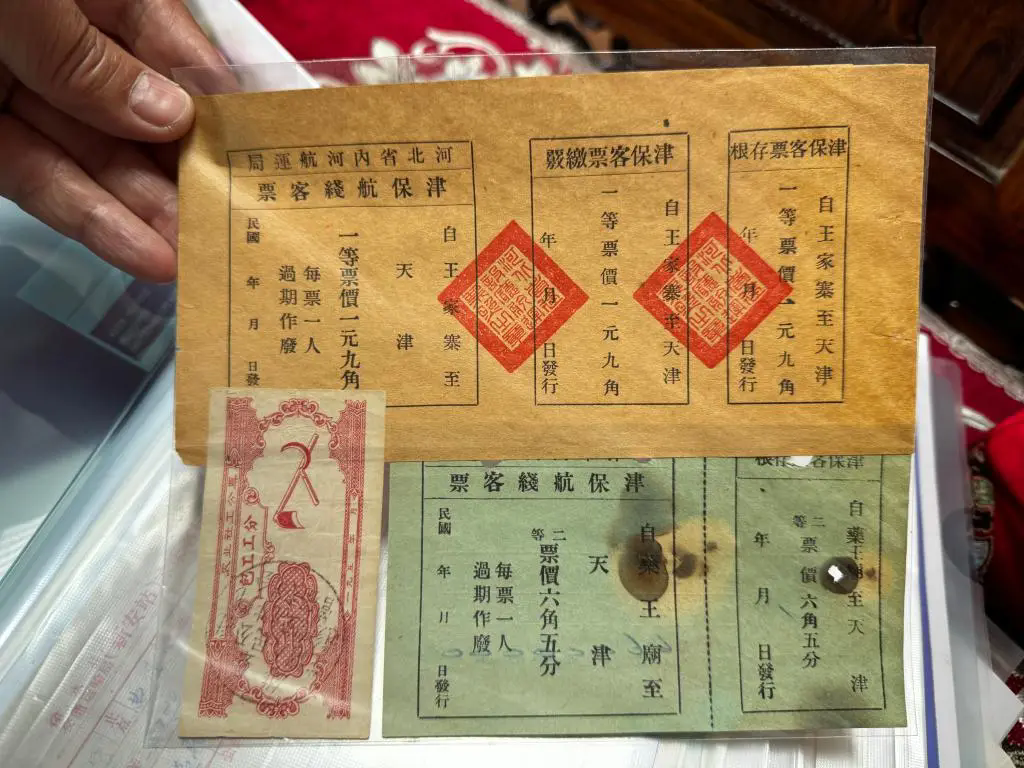 津保客票存根
自王家寨至天津
一等票價一元九角
年月日發行
津保客票繳覈
自王家寨至天津
一等票價一元九角
年月日發行
河北省內河航運局
津保航綫客票
自王家寨至
天津
一等票價一元九角
每票一人
過期作廢
民國 年 月 日發
津保客票存根
自藥王廟至天津
二等票價六角五分
年月日發行
津保航綫客票
自藥王廟至
天津
二等票價六角五分
每票一人
過期作廢
民國 年 月 日發行